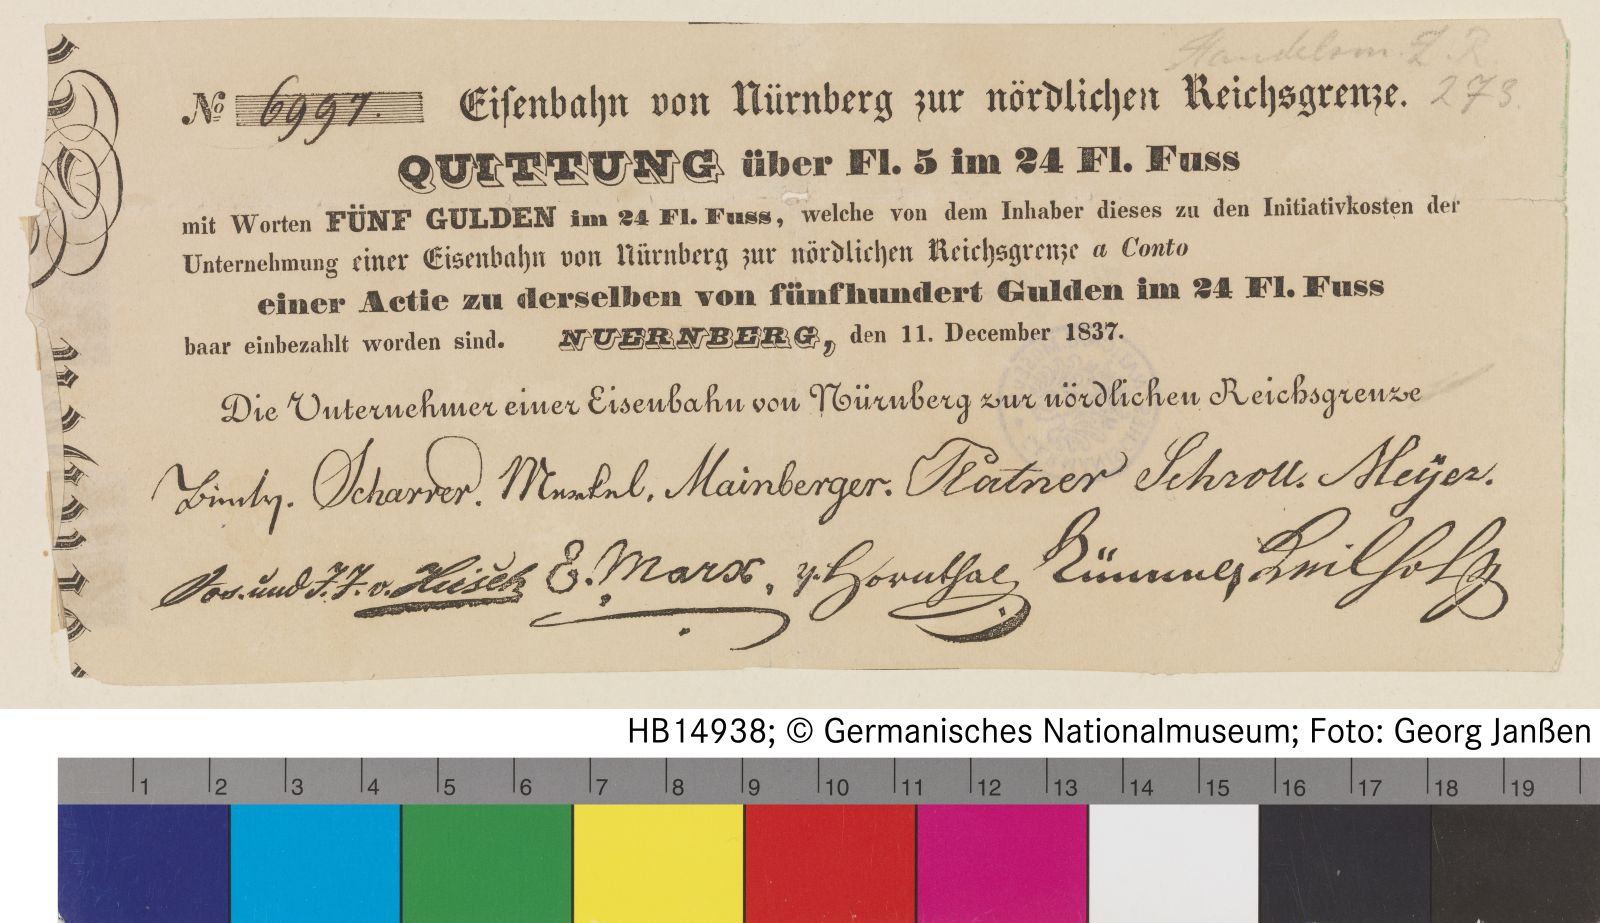 Handelsm. Z. R.
273.
No 6997. Eisenbahn von Nürnberg zur nördlichen Reichsgrenze.
QUITTUNG über Fl. 5 im 24 Fl. Fuss
mit Worten FÜNF GULDEN im 24 Fl. Fuss, welche von dem Inhaber dieses zu den Initiativkosten der
Unternehmung einer Eisenbahn von Nürnberg zur nördlichen Reichsgrenze a Conto
einer Actie zu derselben von fünfhundert Gulden im 24 Fl. Fuss
baar einbezahlt worden sind. NUERNBERG, den 11. December 1837.
Die Unternehmer einer Eisenbahn von Nürnberg zur nördlichen Reichsgrenze
Scharrer. Merkel. Mainberger. Platner Schroll. Meyer.
Jos. und J. J. v. Hirsch E. Marx, v. Hornthal
HB14938; © Germanisches Nationalmuseum; Foto: Georg Janßen
1 2 3 4 5 6 7 8 9 10 11 12 13 14 15 16 17 18 19